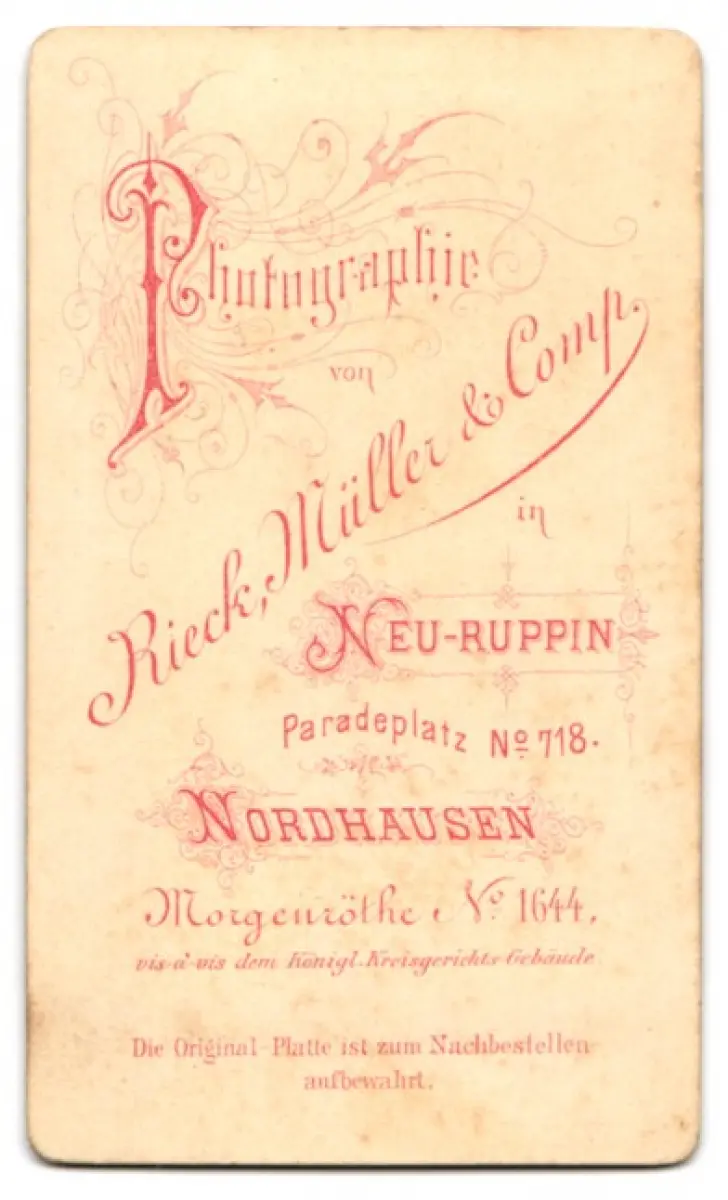 Photographie
von
Rieck, Müller & Comp.
in
NEU-RUPPIN
Paradeplatz No 718.
NORDHAUSEN
Morgenröthe No 1644.
vis-a'-vis dem Königl. Kreisgerichts-Gebäude
Die Original-Platte ist zum Nachbestellen
aufbewahrt.